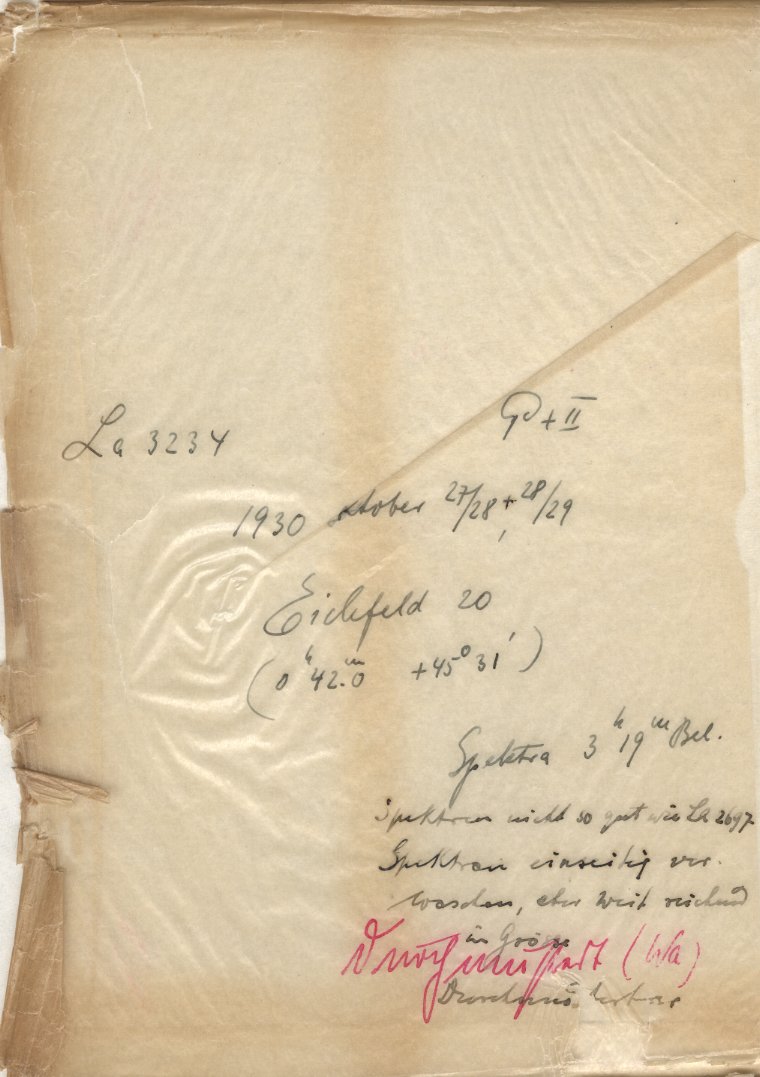 La 3234
Gd + II
1930 Oktober 27/28 + 28/29
Eichfeld 20
(0ʰ42ᵐ.0 +45°31')
Spektra 3ʰ19ᵐ Bel.
Spektren nicht so gut wie La 2697.
Spektren einseitig ver-
waschen, aber weit reichend
in Grösse
Durchmustert (Wa)